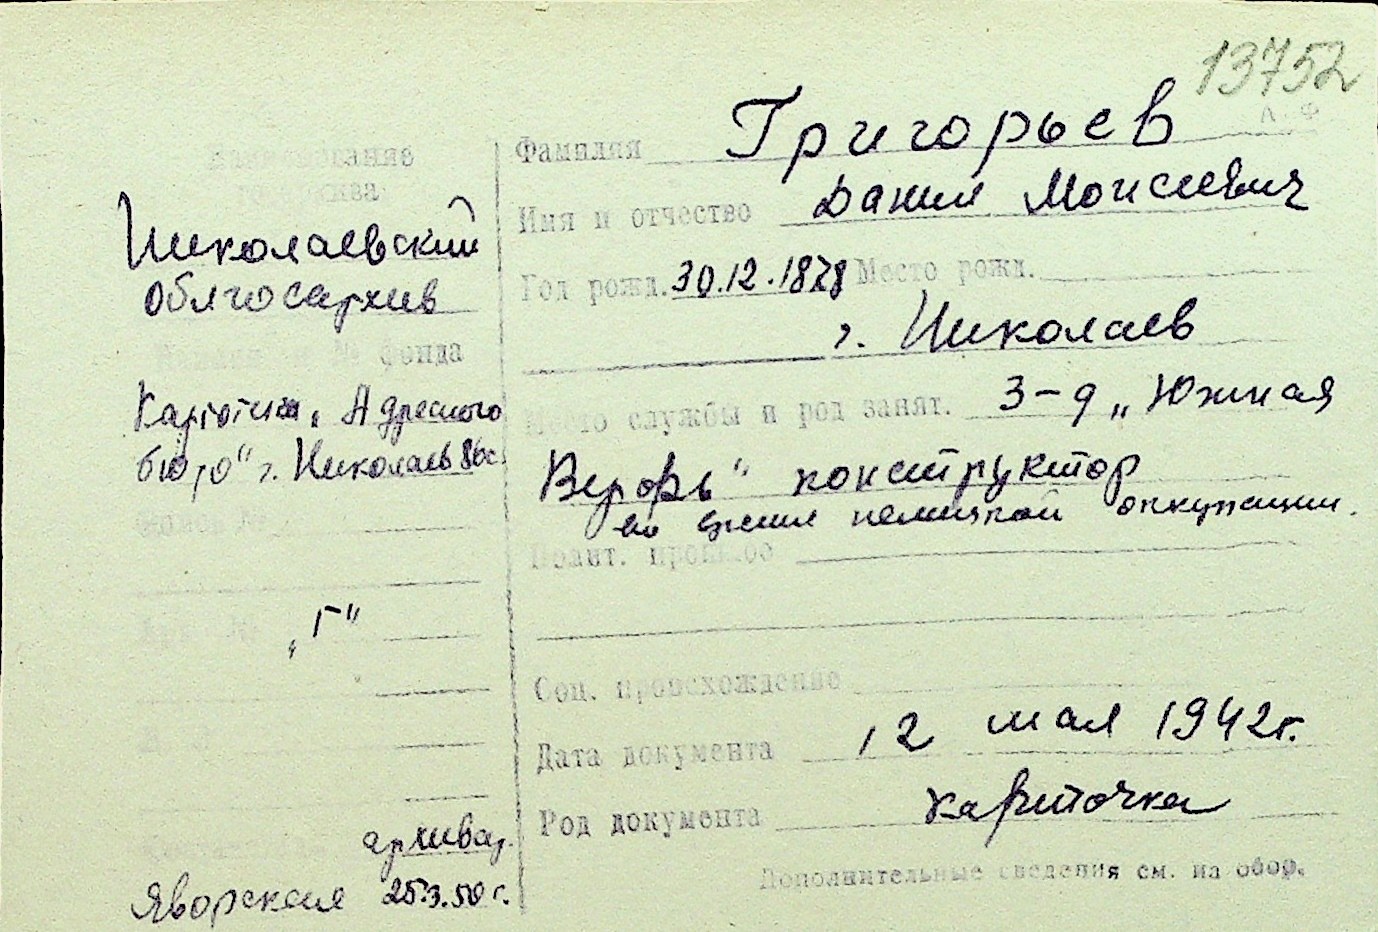 13752
Л. Ф
Наименование
госархива
Николаевский
Облгосархив
№ фонда
Картотека „Адресного
бюро" г. Николаев 86с.
„Г"
архивар.
Яворская 25.3.50 г.
Фамилия Григорьев
Имя и отчество Данил Моисеевич
Год рожд. 30.12.1878 Место рожд.
г. Николаев
Место службы и род занят. З-д „Южная
Верфь" конструктор
во время немецкой оккупации.
Полит. прошлое
Соц. происхождение
Дата документа 12 мая 1942г.
Род документа карточка
Дополнительные сведения см. на обор.